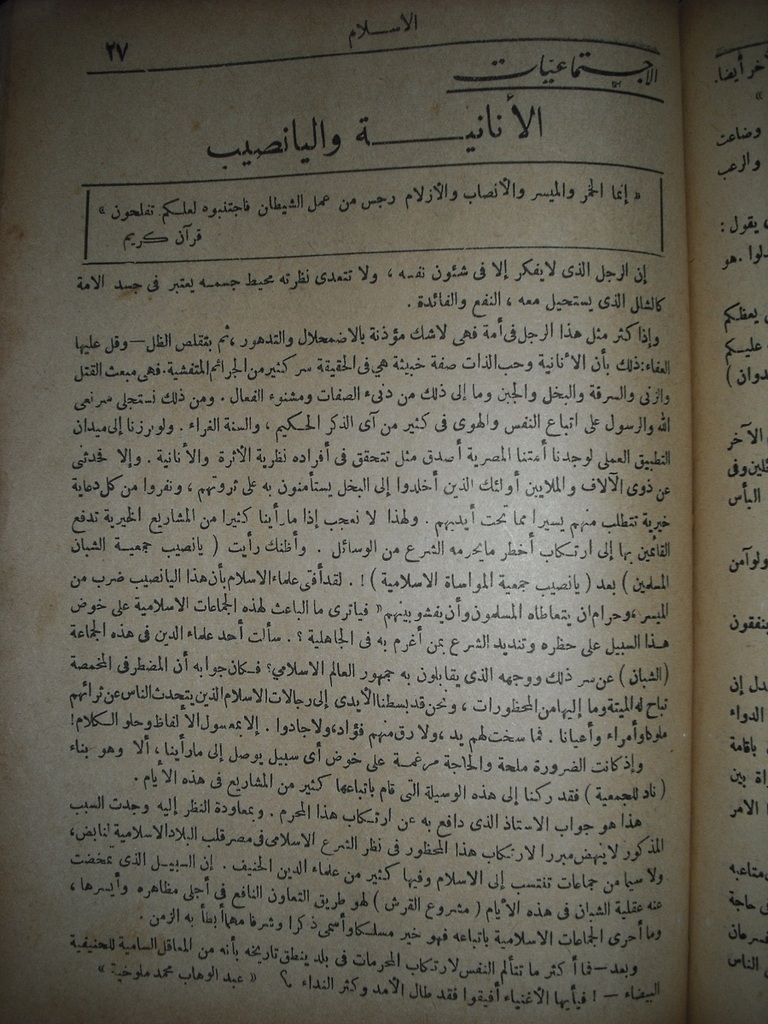 الاسلام
٢٧
الاجتماعيات
الأنانية واليانصيب
« إنما الخمر والميسر والأنصاب والأزلام رجس من عمل الشيطان فاجتنبوه لعلكم تفلحون »
قرآن كريم
إن الرجل الذى لا يفكر إلا فى شئون نفسه ، ولا تتعدى نظرته محيط جسمه يعتبر فى جسد الامة
كالشلل الذى يستحيل معه ، النفع والفائدة .
وإذا كثر مثل هذا الرجل فى أمة فهى لاشك مؤذنة بالاضمحلال والتدهور ، ثم بتقلص الظل — وقل عليها
العفاء : ذلك بأن الأنانية وحب الذات صفة خبيثة هى فى الحقيقة سر كثير من الجرائم المتفشية . فهى مبعث القتل
والزنى والسرقة والبخل والجبن وما إلى ذلك من دنىء الصفات ومشنوء الفعال . ومن ذلك نستجلى سر نعى
الله والرسول على اتباع النفس والهوى فى كثير من آى الذكر الحكيم ، والسنة الغراء . ولو برزنا إلى ميدان
التطبيق العملى لوجدنا أمتنا المصرية أصدق مثل تتحقق فى أفراده نظرية الأثرة والأنانية . وإلا فحدثنى
عن ذوى الآلاف والملايين أولئك الذين أخلدوا إلى البخل يستأمنون به على ثروتهم ، ونفروا من كل دعاية
خيرية تتطلب منهم يسيرا مما تحت أيديهم . ولهذا لا نعجب إذا ما رأينا كثيرا من المشاريع الخيرية تدفع
القائمين بها إلى ارتكاب أخطر ما يحرمه الشرع من الوسائل . وأظنك رأيت ( يانصيب جمعية الشبان
المسلمين ) بعد ( يانصيب جمعية المواساة الاسلامية ) ! . لقد أفتى علماء الاسلام بأن هذا اليانصيب ضرب من
الميسر ، وحرام ان يتعاطاه المسلمون وأن يفشو بينهم « فياترى ما الباعث لهذه الجماعات الاسلامية على خوض
هذا السبيل على حظره وتنديد الشرع بمن أغرم به فى الجاهلية ؟ . سألت أحد علماء الدين فى هذه الجماعة
(الشبان ) عن سر ذلك ووجهه الذى يقابلون به جمهور العالم الاسلامى ؟ فكان جوابه أن المضطر فى المخمصة
تباح له الميتة وما إليها من المحظورات ، ونحن قد بسطنا الأيدى إلى رجالات الاسلام الذين يتحدث الناس عن ثرائهم
ملوكا وأمراء وأعيانا . فما سخت لهم يد ، ولا رق منهم فؤاد ، ولا جادوا . إلا بمعسول الألفاظ وحلو الكلام !
وإذ كانت الضرورة ملحة والحاجة مرغمة على خوض أى سبيل يوصل إلى ما رأينا ، ألا وهو بناء
( ناد للجمعية ) فقد ركنا إلى هذه الوسيلة التى قام باتباعها كثير من المشاريع فى هذه الأيام .
هذا هو جواب الاستاذ الذى دافع به عن ارتكاب هذا المحرم . وبمعاودة النظر إليه وجدت السبب
المذكور لا ينهض مبررا لارتكاب هذا المحظور فى نظر الشرع الاسلامى فى مصر قلب البلاد الاسلامية النابض ،
ولا سيما من جماعات تنتسب إلى الاسلام وفيها كثير من علماء الدين الحنيف . إن السبيل الذى تمخضت
عنه عقلية الشبان فى هذه الأيام ( مشروع القرش ) لهو طريق التعاون النافع فى أجلى مظاهره وأيسرها ،
وما أحرى الجماعات الاسلامية باتباعه فهو خير مسلكا وأسمى ذكرا وشرفا مهما أبطأ به الزمن .
وبعد — فما أكثر ما تتألم النفس لارتكاب المحرمات فى بلد ينطق تاريخه بأنه من المعاقل السامية للحنيفية
البيضاء — ! فيأيها الأغنياء أفيقوا فقد طال الأمد وكثر النداء ؟ « عبد الوهاب محمد ملوخية »